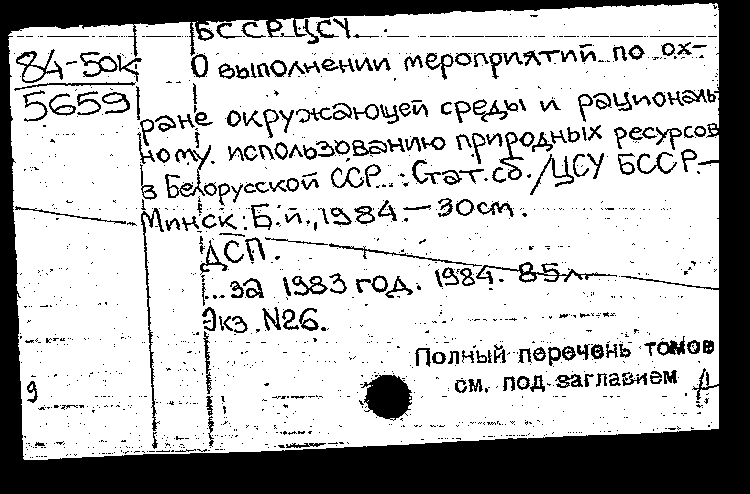 БССР. ЦСУ.
84-50к
5659
О выполнении мероприятий по ох-
ране окружающей среды и рациональ
ному использованию природных ресурсов
в Белорусской ССР...: Стат. сб. / ЦСУ БССР.—
Минск: Б.и., 1984.— 30см.
ДСП.
...за 1983 год. 1984. 85л.
Экз. N26.
Полный перечень томов
см. под заглавием
9